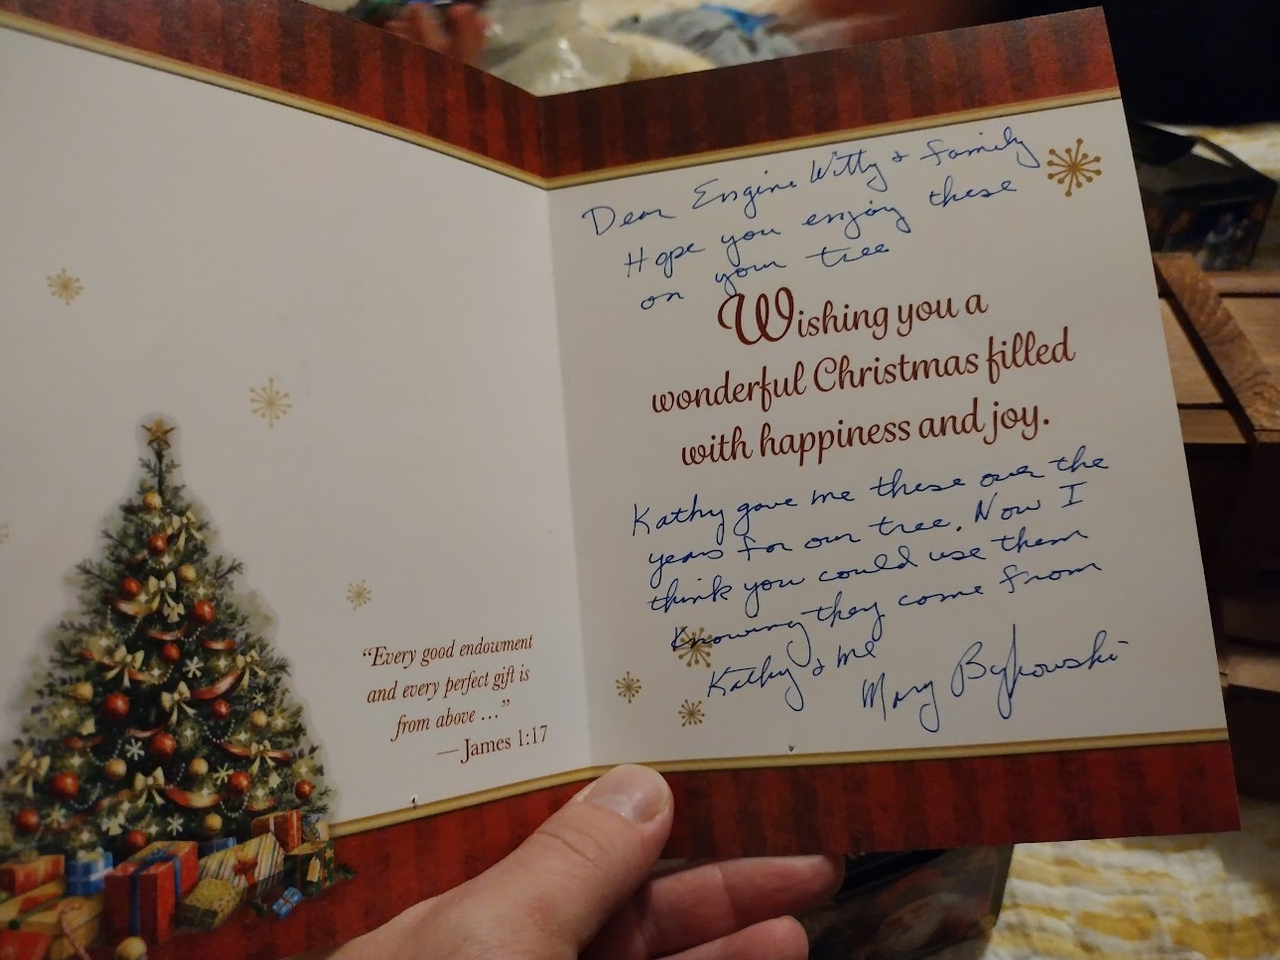 “Every good endowment
and every perfect gift is
from above ...”
—James 1:17
Dear Engine Witty & family
Hope you enjoy these
on your tree
Wishing you a
wonderful Christmas filled
with happiness and joy.
Kathy gave me these over the
years for our tree. Now I
think you could use them
knowing they come from
Kathy & me
Mary Bykowski